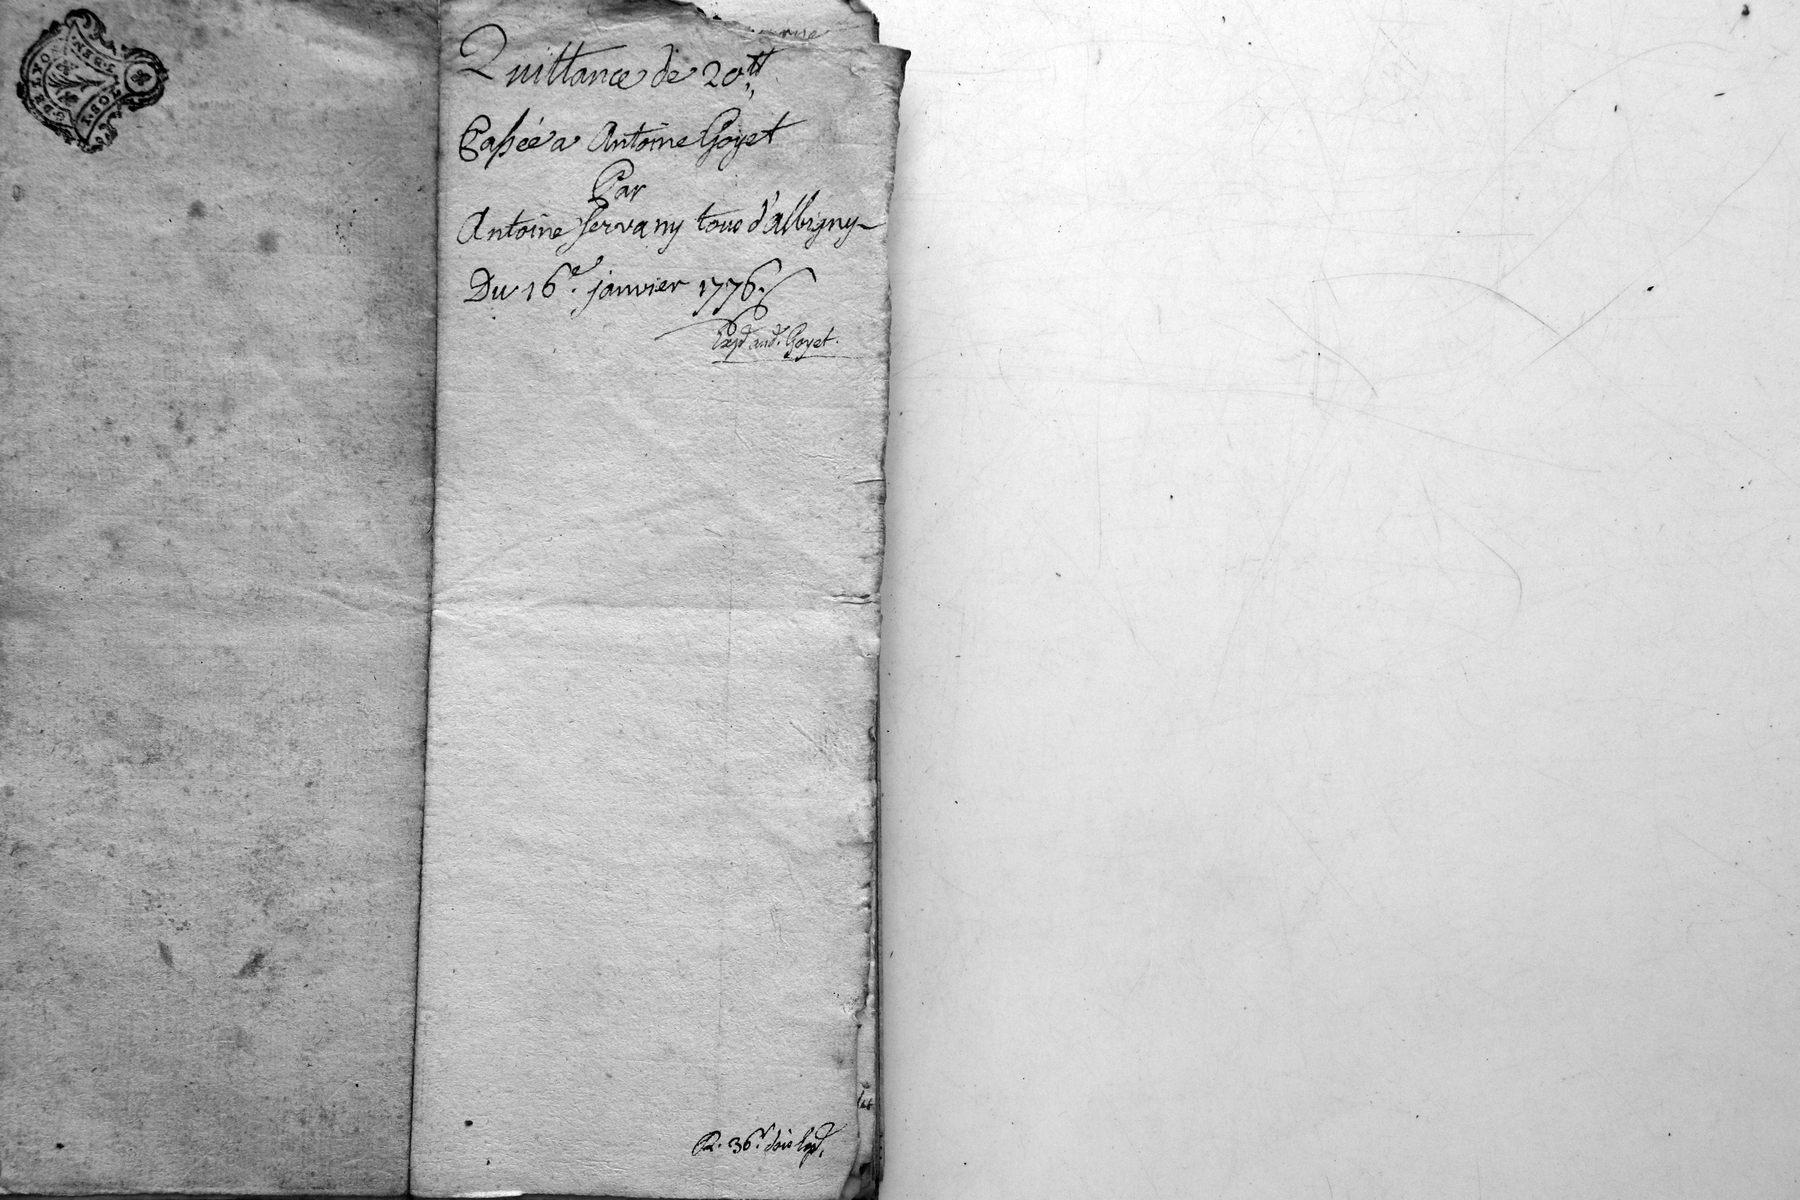 GEN. DE LYON
1. SOL
Quittance de 20tt
Passée a Antoine Goyet
Par
Antoine Servany tous d'albigny
Du 16e. janvier 1776.
Expd. aud. Goyet.
R. 36s.